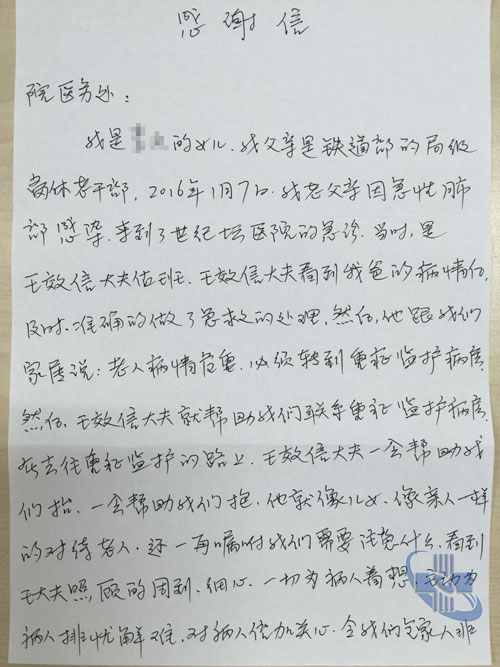 感谢信
院医务处：
我是的女儿，我父亲是铁道部的局级
离休老干部，2016年1月7日，我老父亲因急性肺
部感染，来到了世纪坛医院的急诊，当时，是
王效信大夫值班，王效信大夫看到我爸的病情后，
及时、准确的做了急救的处理，然后，他跟我们
家属说：老人病情危重，必须转到重症监护病房，
然后，王效信大夫就帮助我们联系重症监护病房，
在去往重症监护的路上，王效信大夫一会帮助我
们抬，一会帮助我们抱，他就像儿女，像亲人一样
的对待老人，还一再嘱咐我们需要注意什么，看到
王大夫照顾的周到、细心，一切为病人着想，主动为
病人排忧解难，对病人倍加关心，令我们全家人非